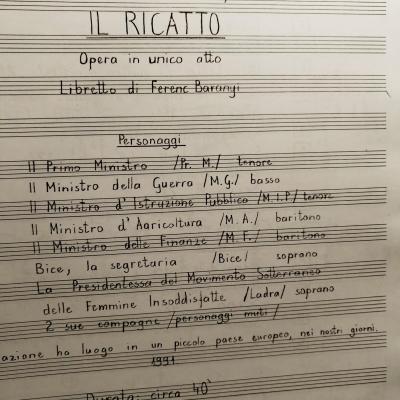 IL RICATTO
Opera in unico atto
Libretto di Ferenc Baranyi
Personaggi
Il Primo Ministro /Pr. M./ tenore
Il Ministro della Guerra /M.G./ basso
Il Ministro d'Istruzione Pubblico /M.I.P./ tenore
Il Ministro d'Agricoltura /M.A./ baritono
Il Ministro delle Finanze /M.F./ baritono
Bice, la segretaria /Bice/ soprano
La Presidentessa del Movimento Sotterraneo
delle Femmine Insoddisfatte /Ladra/ soprano
2 sue compagne /personaggi muti/
azione ha luogo in un piccolo paese europeo, nei nostri giorni.
1991
Durata: circa 40'